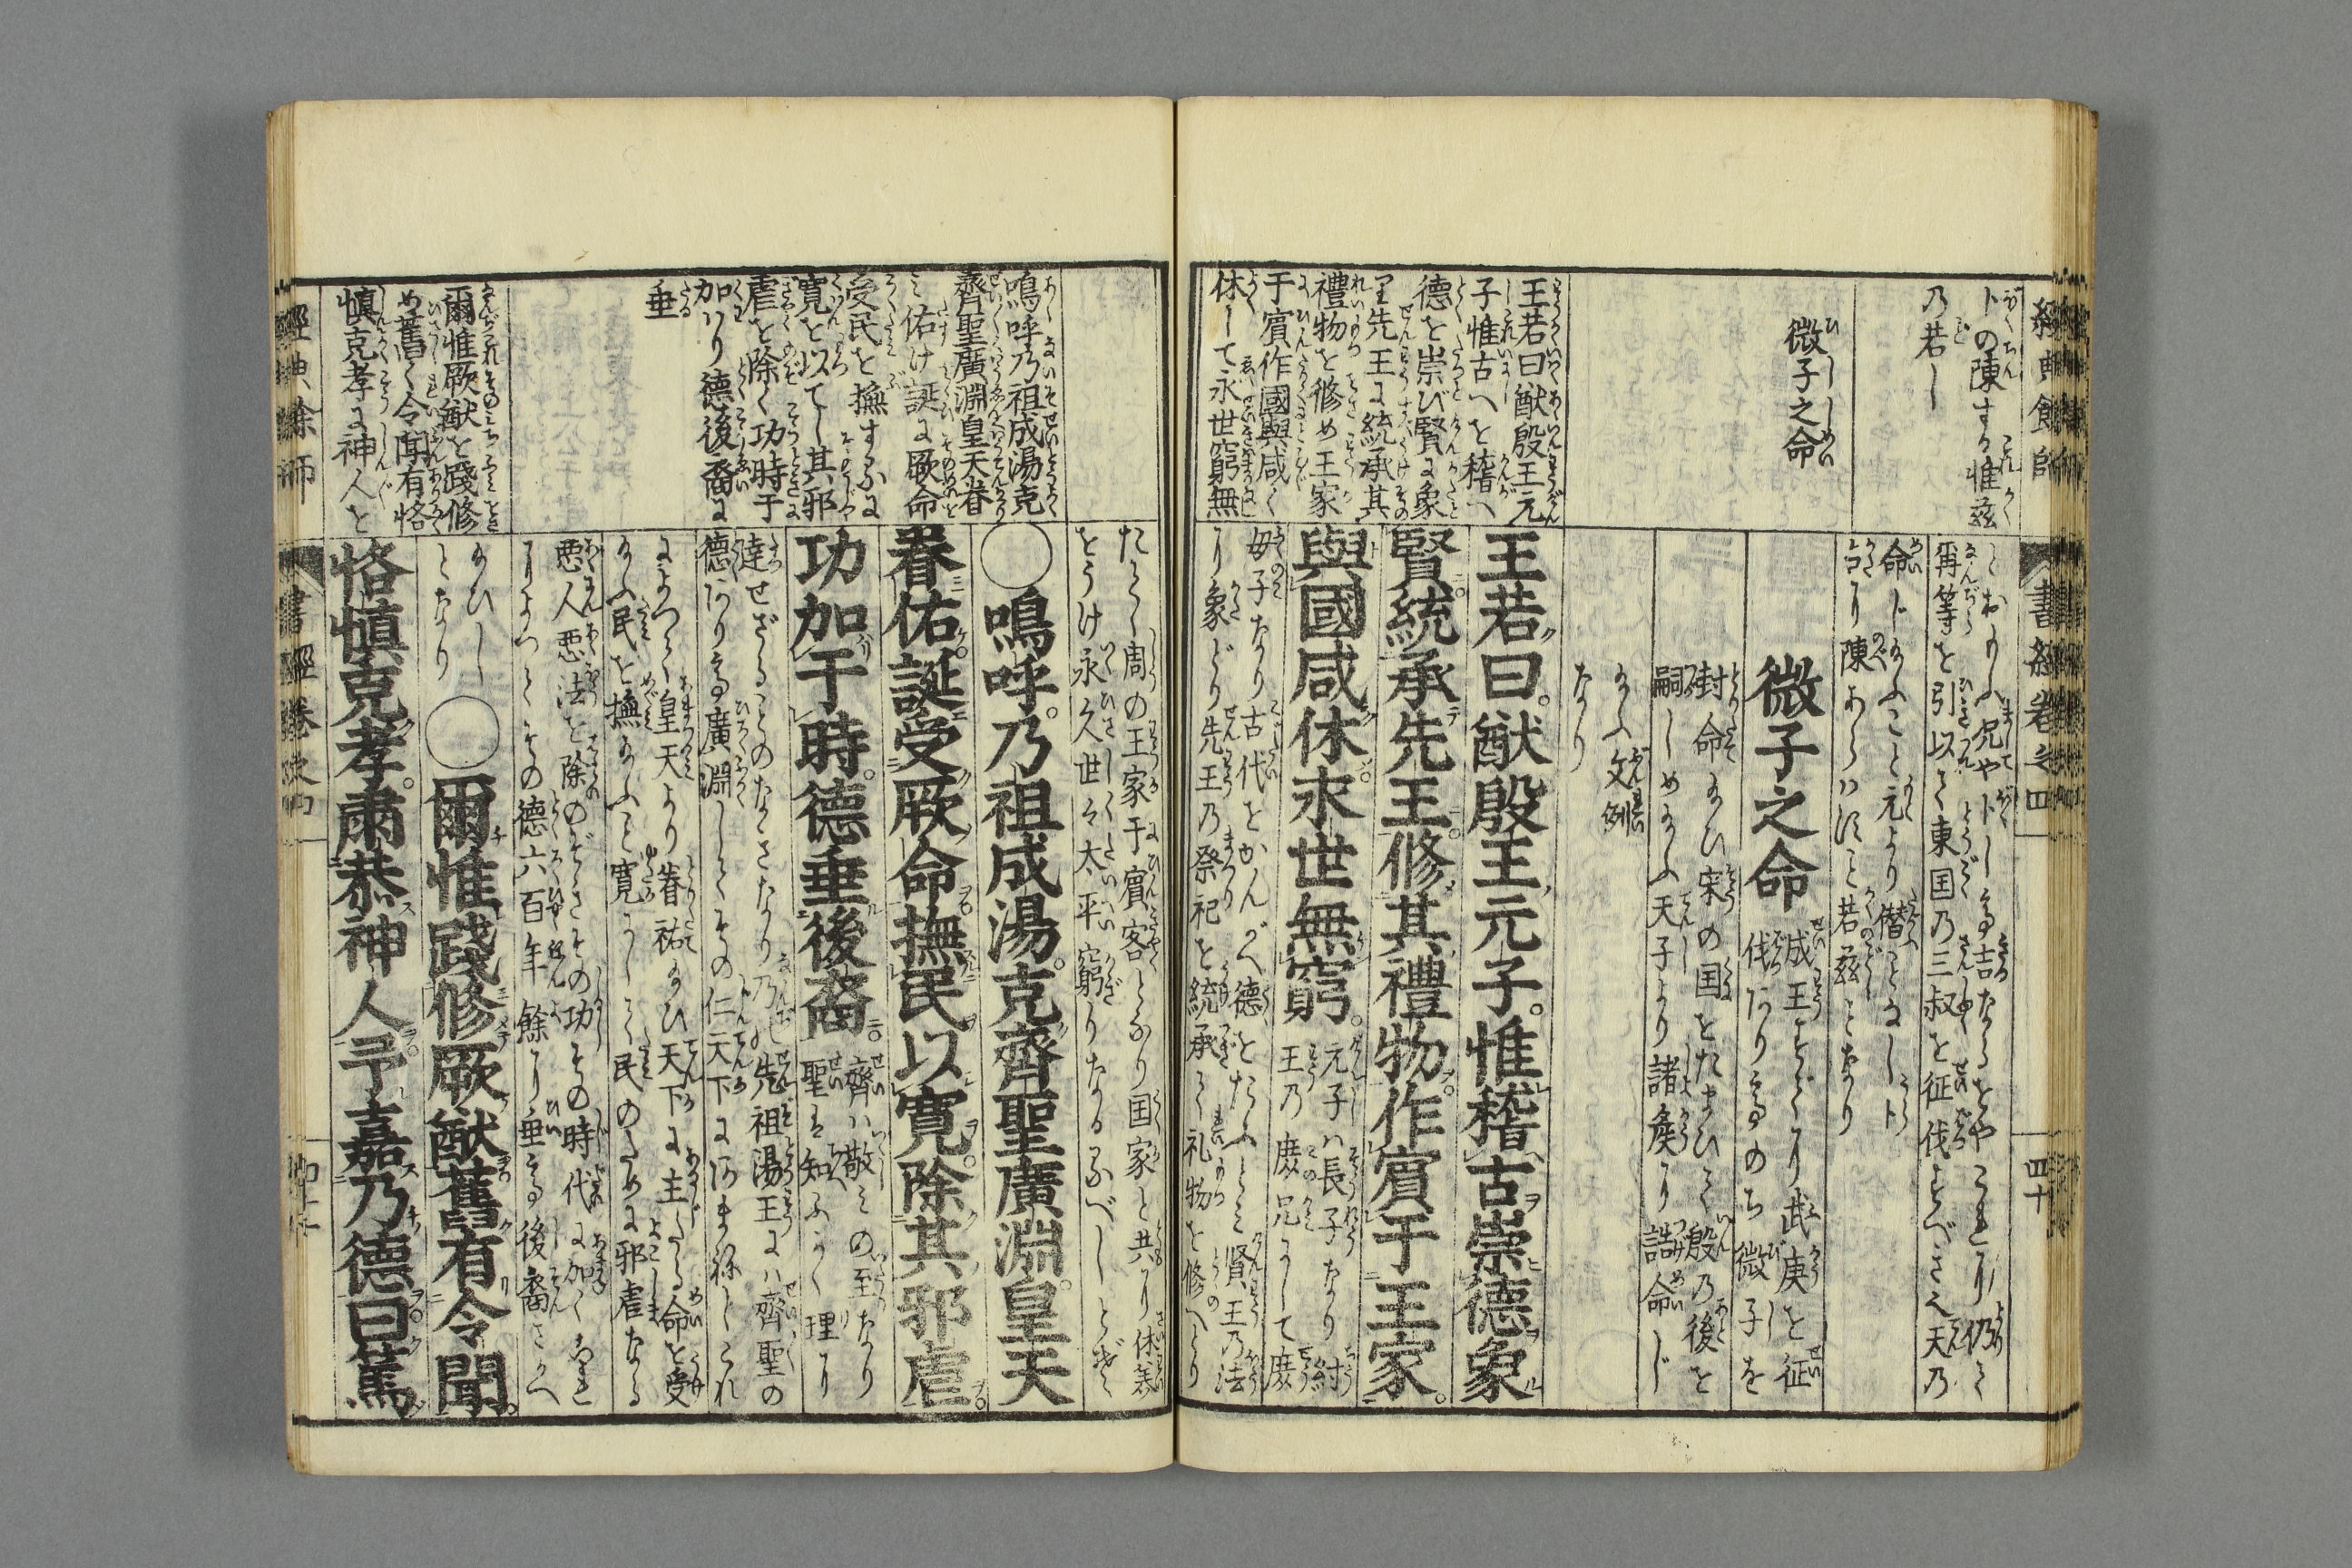 經典餘師
書經卷之四
四十
卜の陳する惟茲
乃若し
微子之命
王若曰猷殷王元
子惟古へを稽へ
德を崇び賢に象
り先王に統承其
禮物を修め王家
于賓作國與咸く
休して永世窮無
再等を引以て東国乃三叔を征伐すべきや天乃
命じ給ふこと元より僣ことなし卜
微子之命
成王すでに武庚を征
伐ありその のち微子を
封命給ひ宋の国をたまひて殷乃後を
嗣しめ給ふ天子より諸矦に誥命じ
給ふ文例
なり
王若曰。猷殷王元子。惟稽古崇德象
賢。統承先王。修其禮物。作賓于王家。
與國咸休。永世無窮。
元子ハ長子なり紂
王乃庶兄にして庶
母子なり古代をかんがへ德をたふとみ賢王乃法
に象どり先王乃祭祀を統承て礼物を修へとり
たて周の王家于賓客となり国家と共に休美
をうけ永久世々太平窮りなかるべしとぞ
嗚呼乃祖成湯克
齊聖廣淵皇天眷
み佑け誕に厥命
受民を撫するに
寛を以てし其邪
虐を除く功時于
加り德後裔に
垂
爾惟厥猷を踐修
め舊く令聞有恪
愼克孝に神人を
○嗚呼。乃祖成湯。克齊聖廣淵。皇天
眷佑。誕受厥命。撫民以寛。除其邪虐。
功加于時。德垂後裔。
齊ハ敬みの至なり
聖は知ふかく理に
達せざることのなきなり乃先祖湯王にハ齊聖の
德ありその廣淵してその仁天下にあまねしこれ
によつて皇天より眷祐給ひ天下に主たる命を受
給ふ民を撫給ふと寛にして民のために邪虐なる
悪人悪法を除のぞきその功その時代に加く
によつてその德六百年餘に垂その後裔さかへ
給ひし
となり
○爾惟踐修厥猷。舊有令聞。
恪愼克孝。肅恭神人。予嘉乃德。曰篤
經典餘師